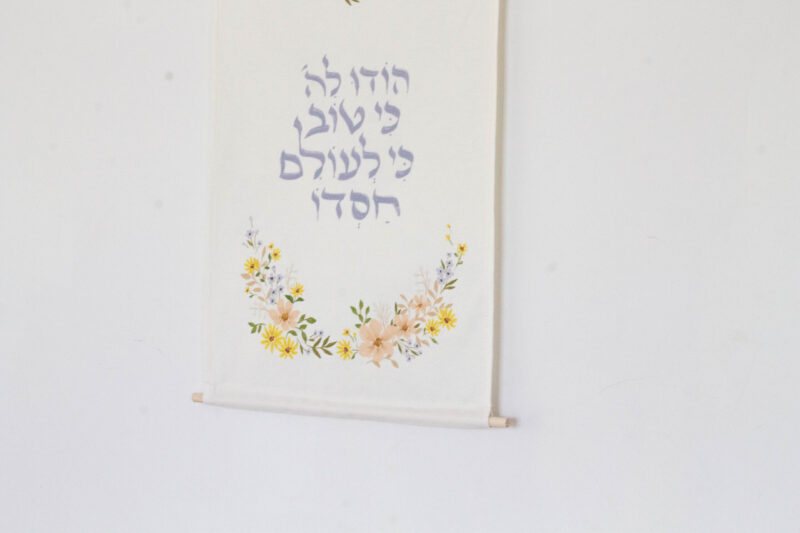 הוֹדוּ לַה'
כִּי טוֹב
כִּי לְעוֹלָם
חַסְדּוֹ